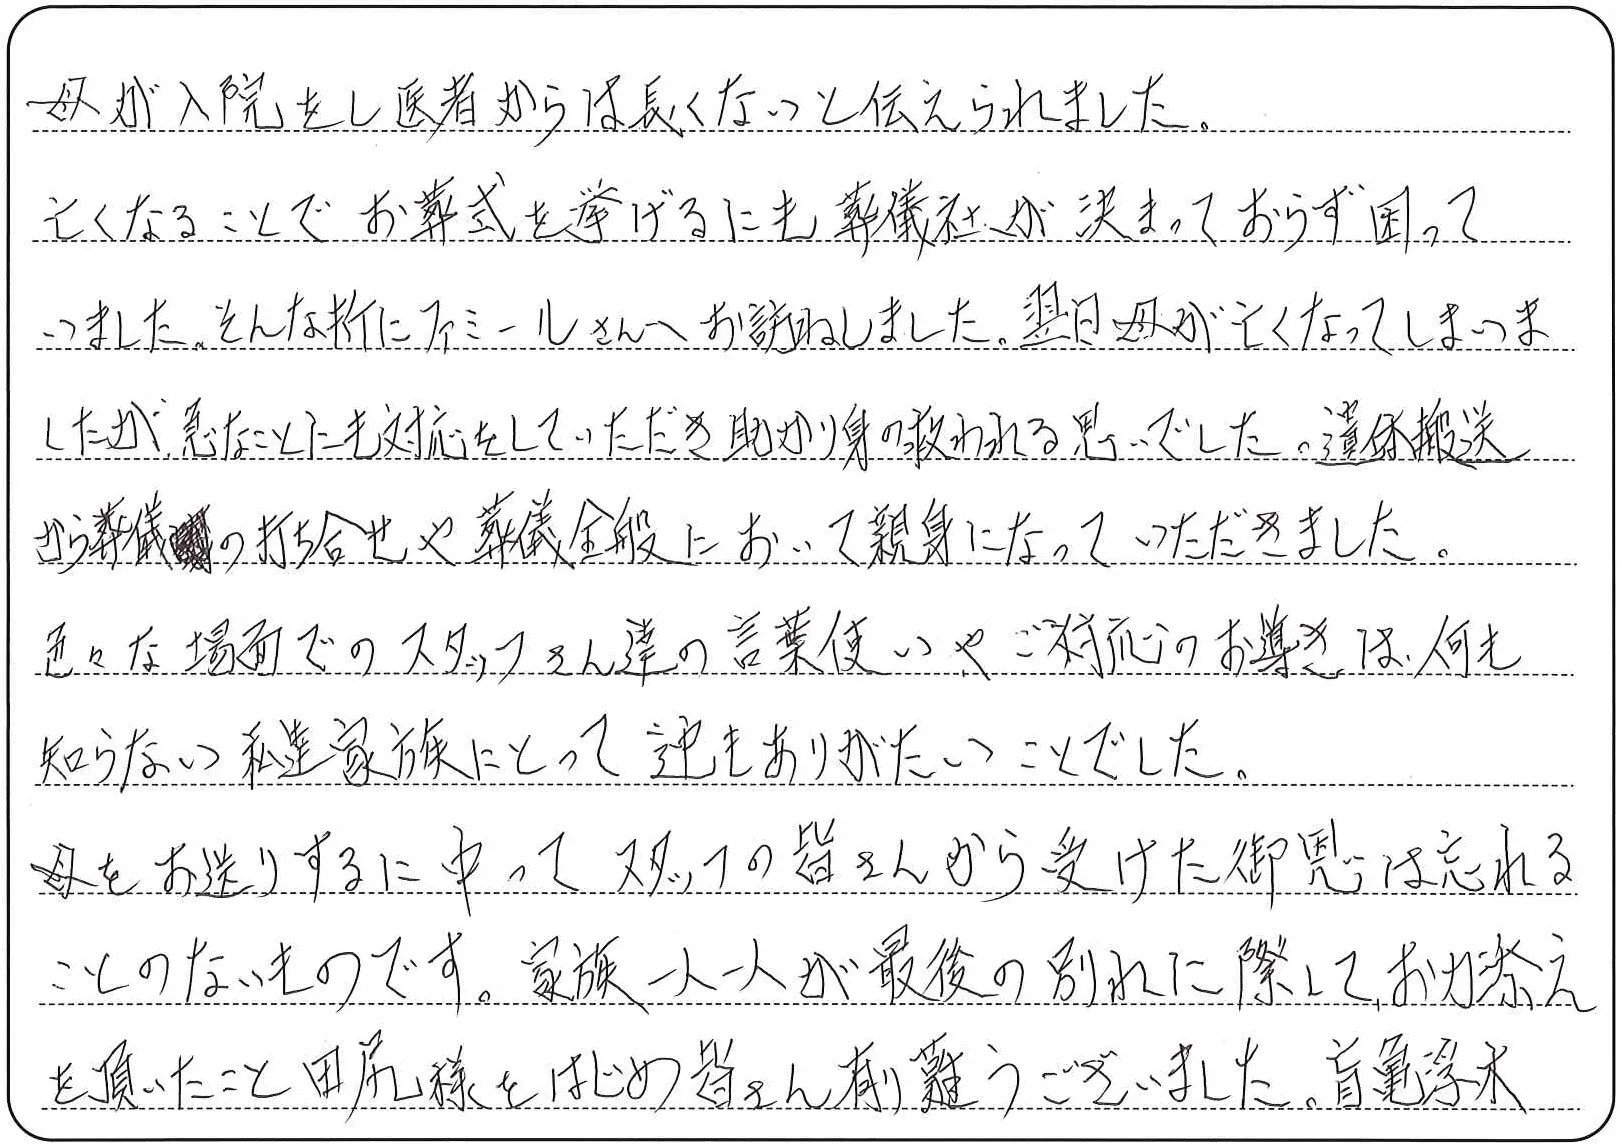 母が入院をし医者からは長くないと伝えられました。
亡くなることでお葬式を挙げるにも葬儀社が決まっておらず困って
いました。そんな折にファミールさんへお訪ねしました。翌日母が亡くなってしまいま
したが、急なことにも対応をしていただき助かり身の救われる思いでした。遺体搬送
から葬儀の打ち合せや葬儀全般において親身になっていただきました。
色々な場面でのスタッフさん達の言葉使いやご対応のお導きは、何も
知らない私達家族にとって迚もありがたいことでした。
母をお送りするに中ってスタッフの皆さんから受けた御恩は忘れる
ことのないものです。家族一人一人が最後の別れに際して、お力添え
を頂いたこと田尻様をはじめ皆さん有り難うございました。盲亀浮木